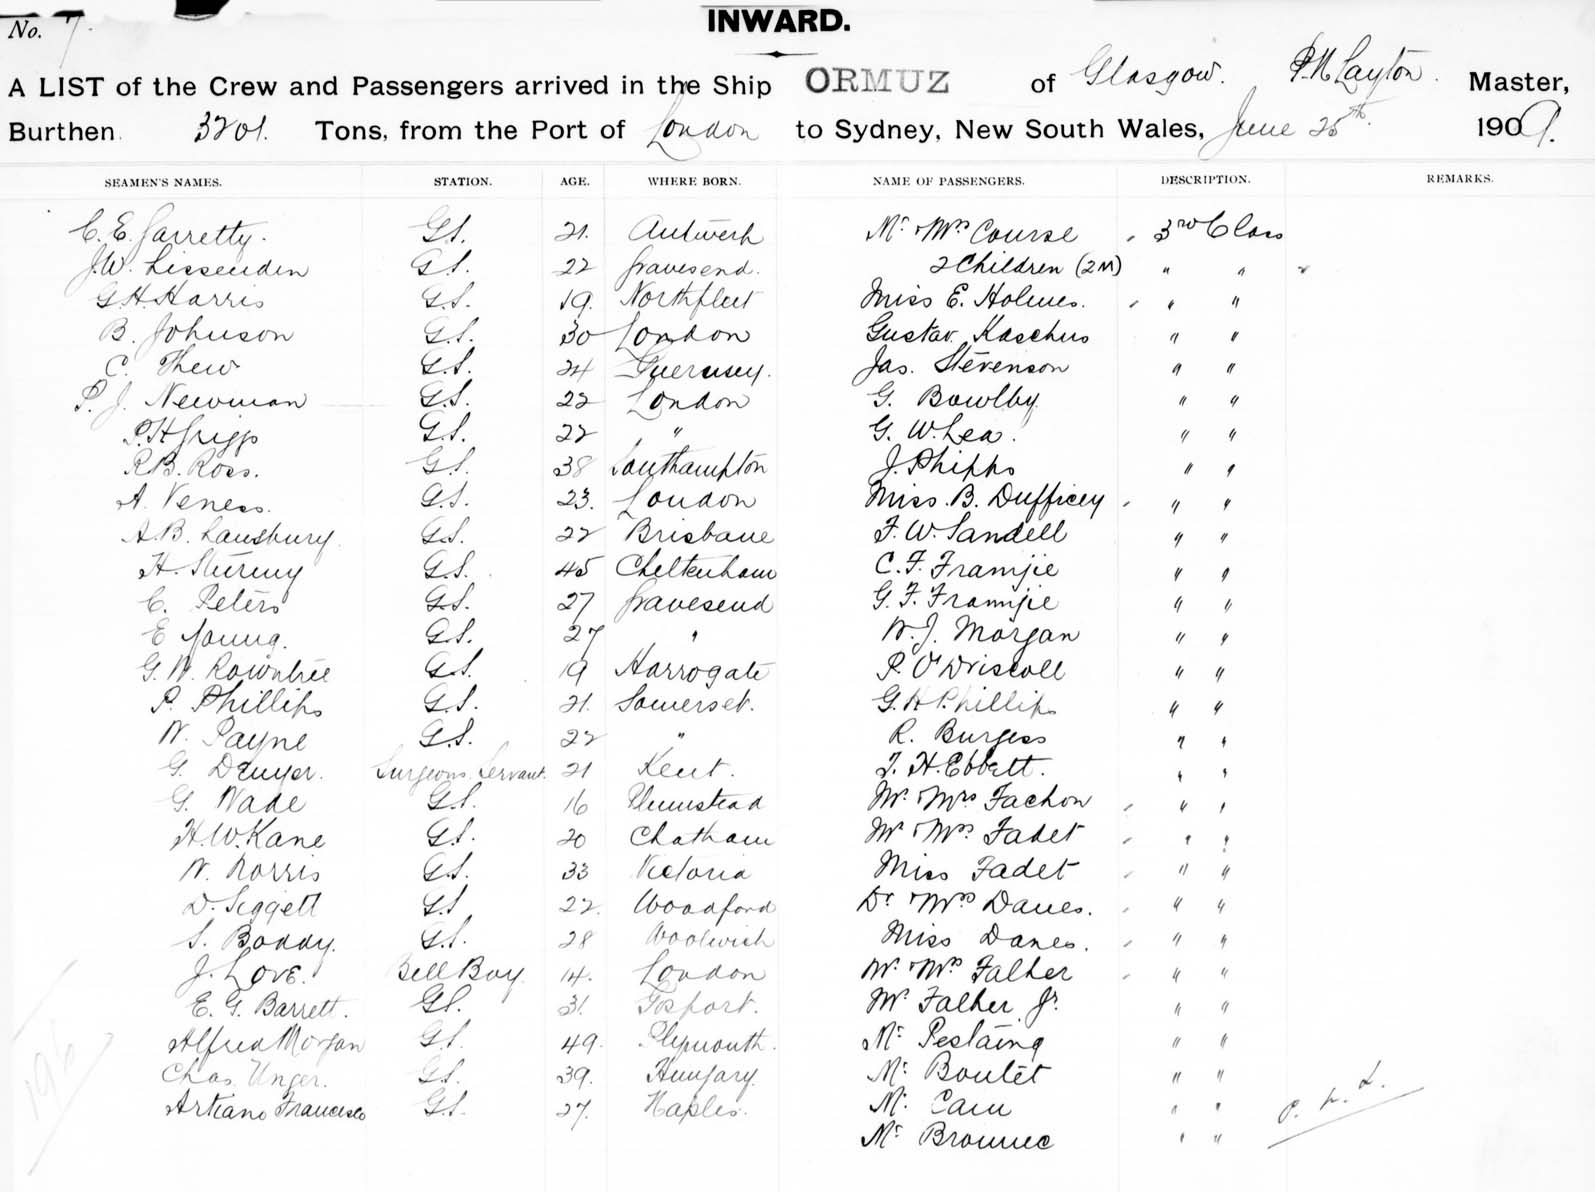 No. 7.
INWARD.
A LIST of the Crew and Passengers arrived in the Ship ORMUZ of Glasgow. P.N Layton. Master,
Burthen 3201. Tons, from the Port of London to Sydney, New South Wales, June 25th. 1909.
SEAMEN'S NAMES. STATION. AGE. WHERE BORN. NAME OF PASSENGERS. DESCRIPTION. REMARKS.
C. E. Garretty. G.S. 21. Antwerp Mr & Mrs Course 3rd Class
J.W. Lissenden G.S. 22 Gravesend. 2 Children (2M) " "
G.H. Harris G.S. 19. Northfleet Miss E. Holmes. " "
B. Johnson G.S. 30 London Gustav Kaschus " "
C. Thew G.S. 24 Guernsey. Jas. Stevenson " "
P. J. Newman G.S. 22 London G. Bowlby " "
P.H Grigg G.S. 22 " G. W. Lea. " "
R.B. Ross. G.S. 38 Southampton J. Phipps " "
A. Veness. G.S. 23. London Miss. B. Dufficey " "
A.B. Lansbury. G.S. 22 Brisbane F. W. Sandell " "
H. Sturmy G.S. 45 Cheltenham C. F. Framjie " "
C. Peters G.S. 27 Gravesend G. F. Framjie " "
E Young. G.S. 27 " W. J. Morgan " "
G. W. Rowntree G.S. 19 Harrogate P. O'Driscoll " "
P. Phillips G.S. 21. Somerset. G. H Phillips " "
W. Payne G.S. 22 " R. Burgess " "
G. Dwyer. Surgeons Servant. 21 Kent. T. H. Ebbett. " "
G. Wade G.S. 16 Plumstead Mr. & Mrs Fachon " "
H. W. Kane G.S. 20 Chatham Mr & Mrs. Fadet " "
W. Norris G.S. 33 Victoria Miss Fadet " "
D. Siggett G.S 22. Woodford Dr & Mrs Danes. " "
S. Boddy. G.S. 28 Woolwich Miss Danes. " "
J. Love. Bell Boy 14. London Mr. & Mrs Falher " "
E. G. Barrett. G.S. 31. Gosport. Mr Falher Jr. " "
Alfred Morgan G.S. 49. Plymouth. Mr Pestaing " "
Chas. Unger. G.S. 39. Hungary. Mr. Boulet " "
Artiano Francesco G.S. 27. Naples. Mr. Cam " "
Mr Brounec " "
196